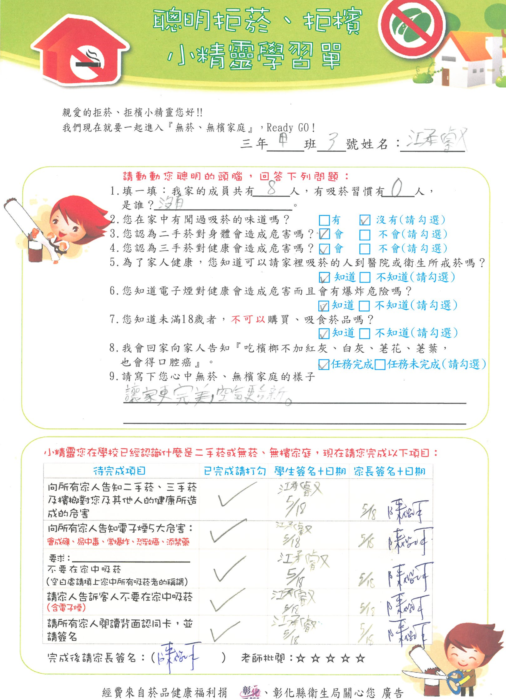 聰明拒菸、拒檳
小精靈學習單
親愛的拒菸、拒檳小精靈您好!!
我們現在就要一起進入『無菸、無檳家庭』，Ready GO!
三年 班 號姓名：江
請動動您聰明的頭腦，回答下列問題：
1.填一填：我家的成員共有8人，有吸菸習慣有0人，
是誰？沒有。
2.您在家中有聞過吸菸的味道嗎？ □有 ☑沒有(請勾選)
3.您認為二手菸對身體會造成危害嗎？☑會 □不會(請勾選)
4.您認為三手菸對健康會造成危害嗎？☑會 □不會(請勾選)
5.為了家人健康，您知道可以請家裡吸菸的人到醫院或衛生所戒菸嗎？
☑知道□不知道(請勾選)
6.您知道電子煙對健康會造成危害而且會有爆炸危險嗎？
☑知道□不知道(請勾選)
7.您知道未滿18歲者，不可以購買、吸食菸品嗎？
☑知道□不知道(請勾選)
8.我會回家向家人告知『吃檳榔不加紅灰、白灰、荖花、荖葉，
也會得口腔癌』。 ☑任務完成□任務未完成(請勾選)
9.請寫下您心中無菸、無檳家庭的樣子
讓家更完美,空氣更清新。
小精靈您在學校已經認識什麼是二手菸或無菸、無檳家庭，現在請您完成以下項目：
待完成項目 已完成請打勾 學生簽名+日期 家長簽名+日期
向所有家人告知二手菸、三手菸
及檳榔對您及其他人的健康所造
成的危害 ✓ 5/18 5/18 陳
向所有家人告知電子煙5大危害：
✓ 5/18 5/18 陳
要求：
不要在家中吸菸
(空白處請填上家中所有吸菸者的稱謂) ✓ 5/18 陳
請家人告訴客人不要在家中吸菸
(含電子煙) ✓ 陳
請所有家人閱讀背面認同卡，並
請簽名 ✓ 5/18 陳
完成後請家長簽名：(陳) 老師批閱：☆☆☆☆☆
經費來自菸品健康福利捐 、彰化縣衛生局關心您 廣告